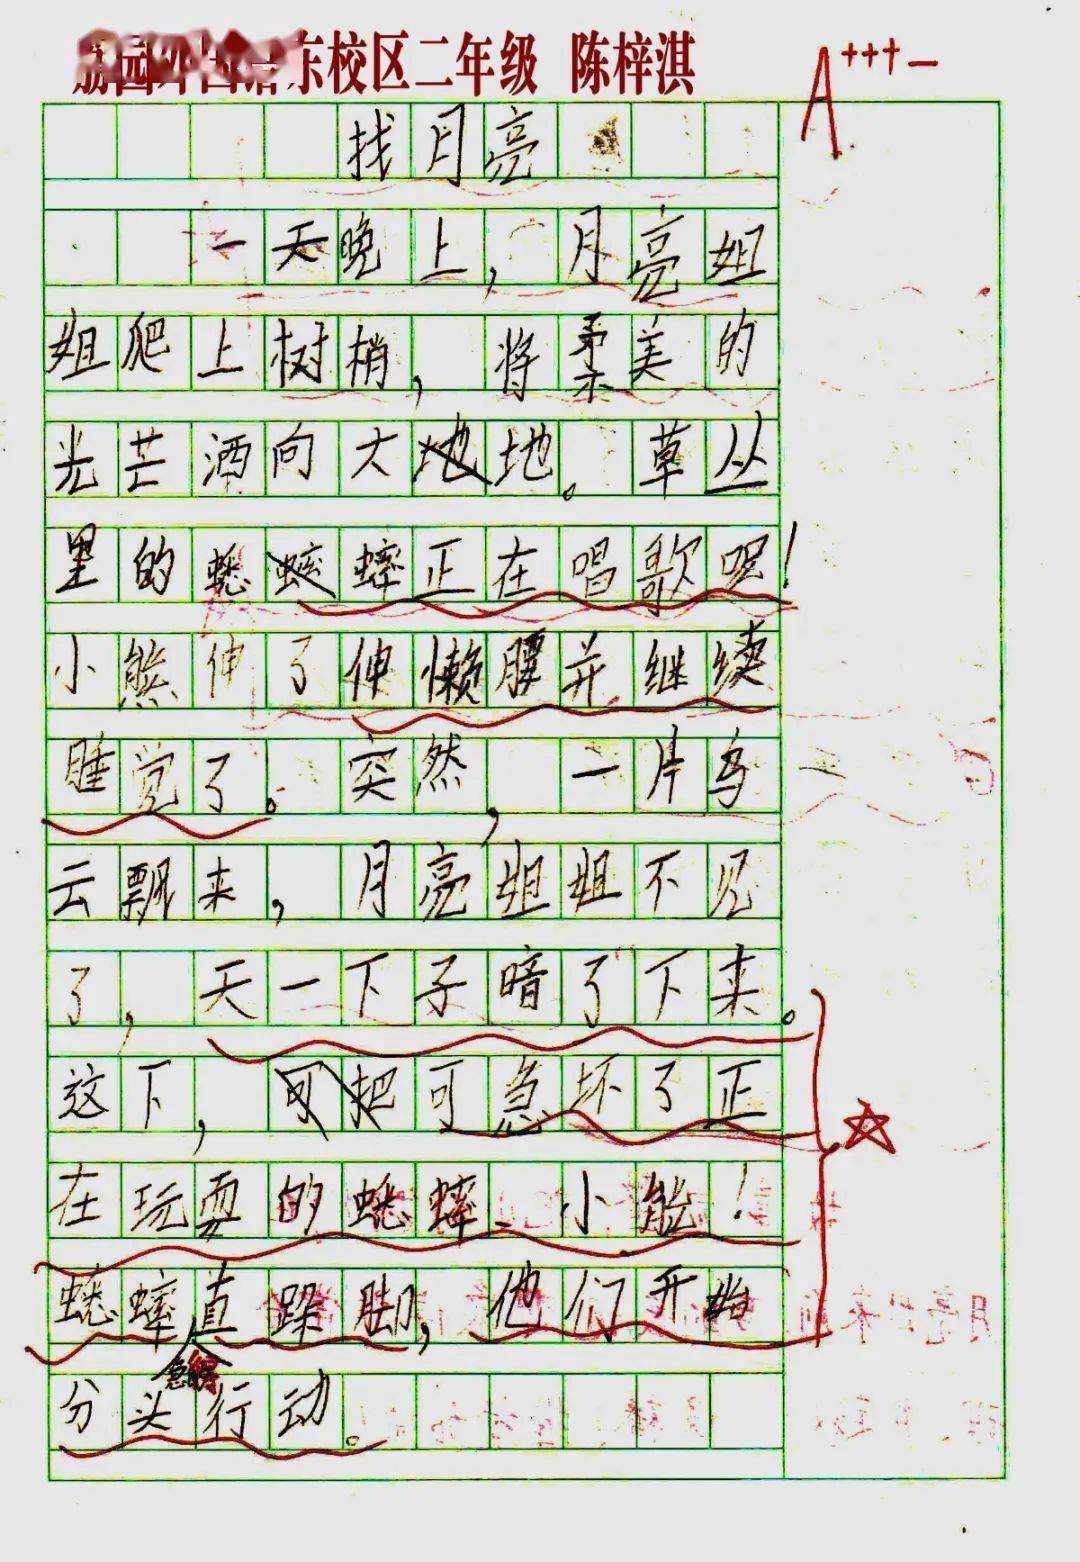 东校区二年级 陈梓淇
A+++-
找月亮
一天晚上，月亮姐
姐爬上树梢，将柔美的
光芒洒向大地地。草丛
里的蟋蟀蟀正在唱歌呢！
小熊伸了伸懒腰并继续
睡觉了。突然，一片乌
云飘来，月亮姐姐不见
了，天一下子暗了下来。
这下，可把可急坏了正
在玩耍的蟋蟀、小能！
蟋蟀急得直跺脚，他们开始
分头行动。